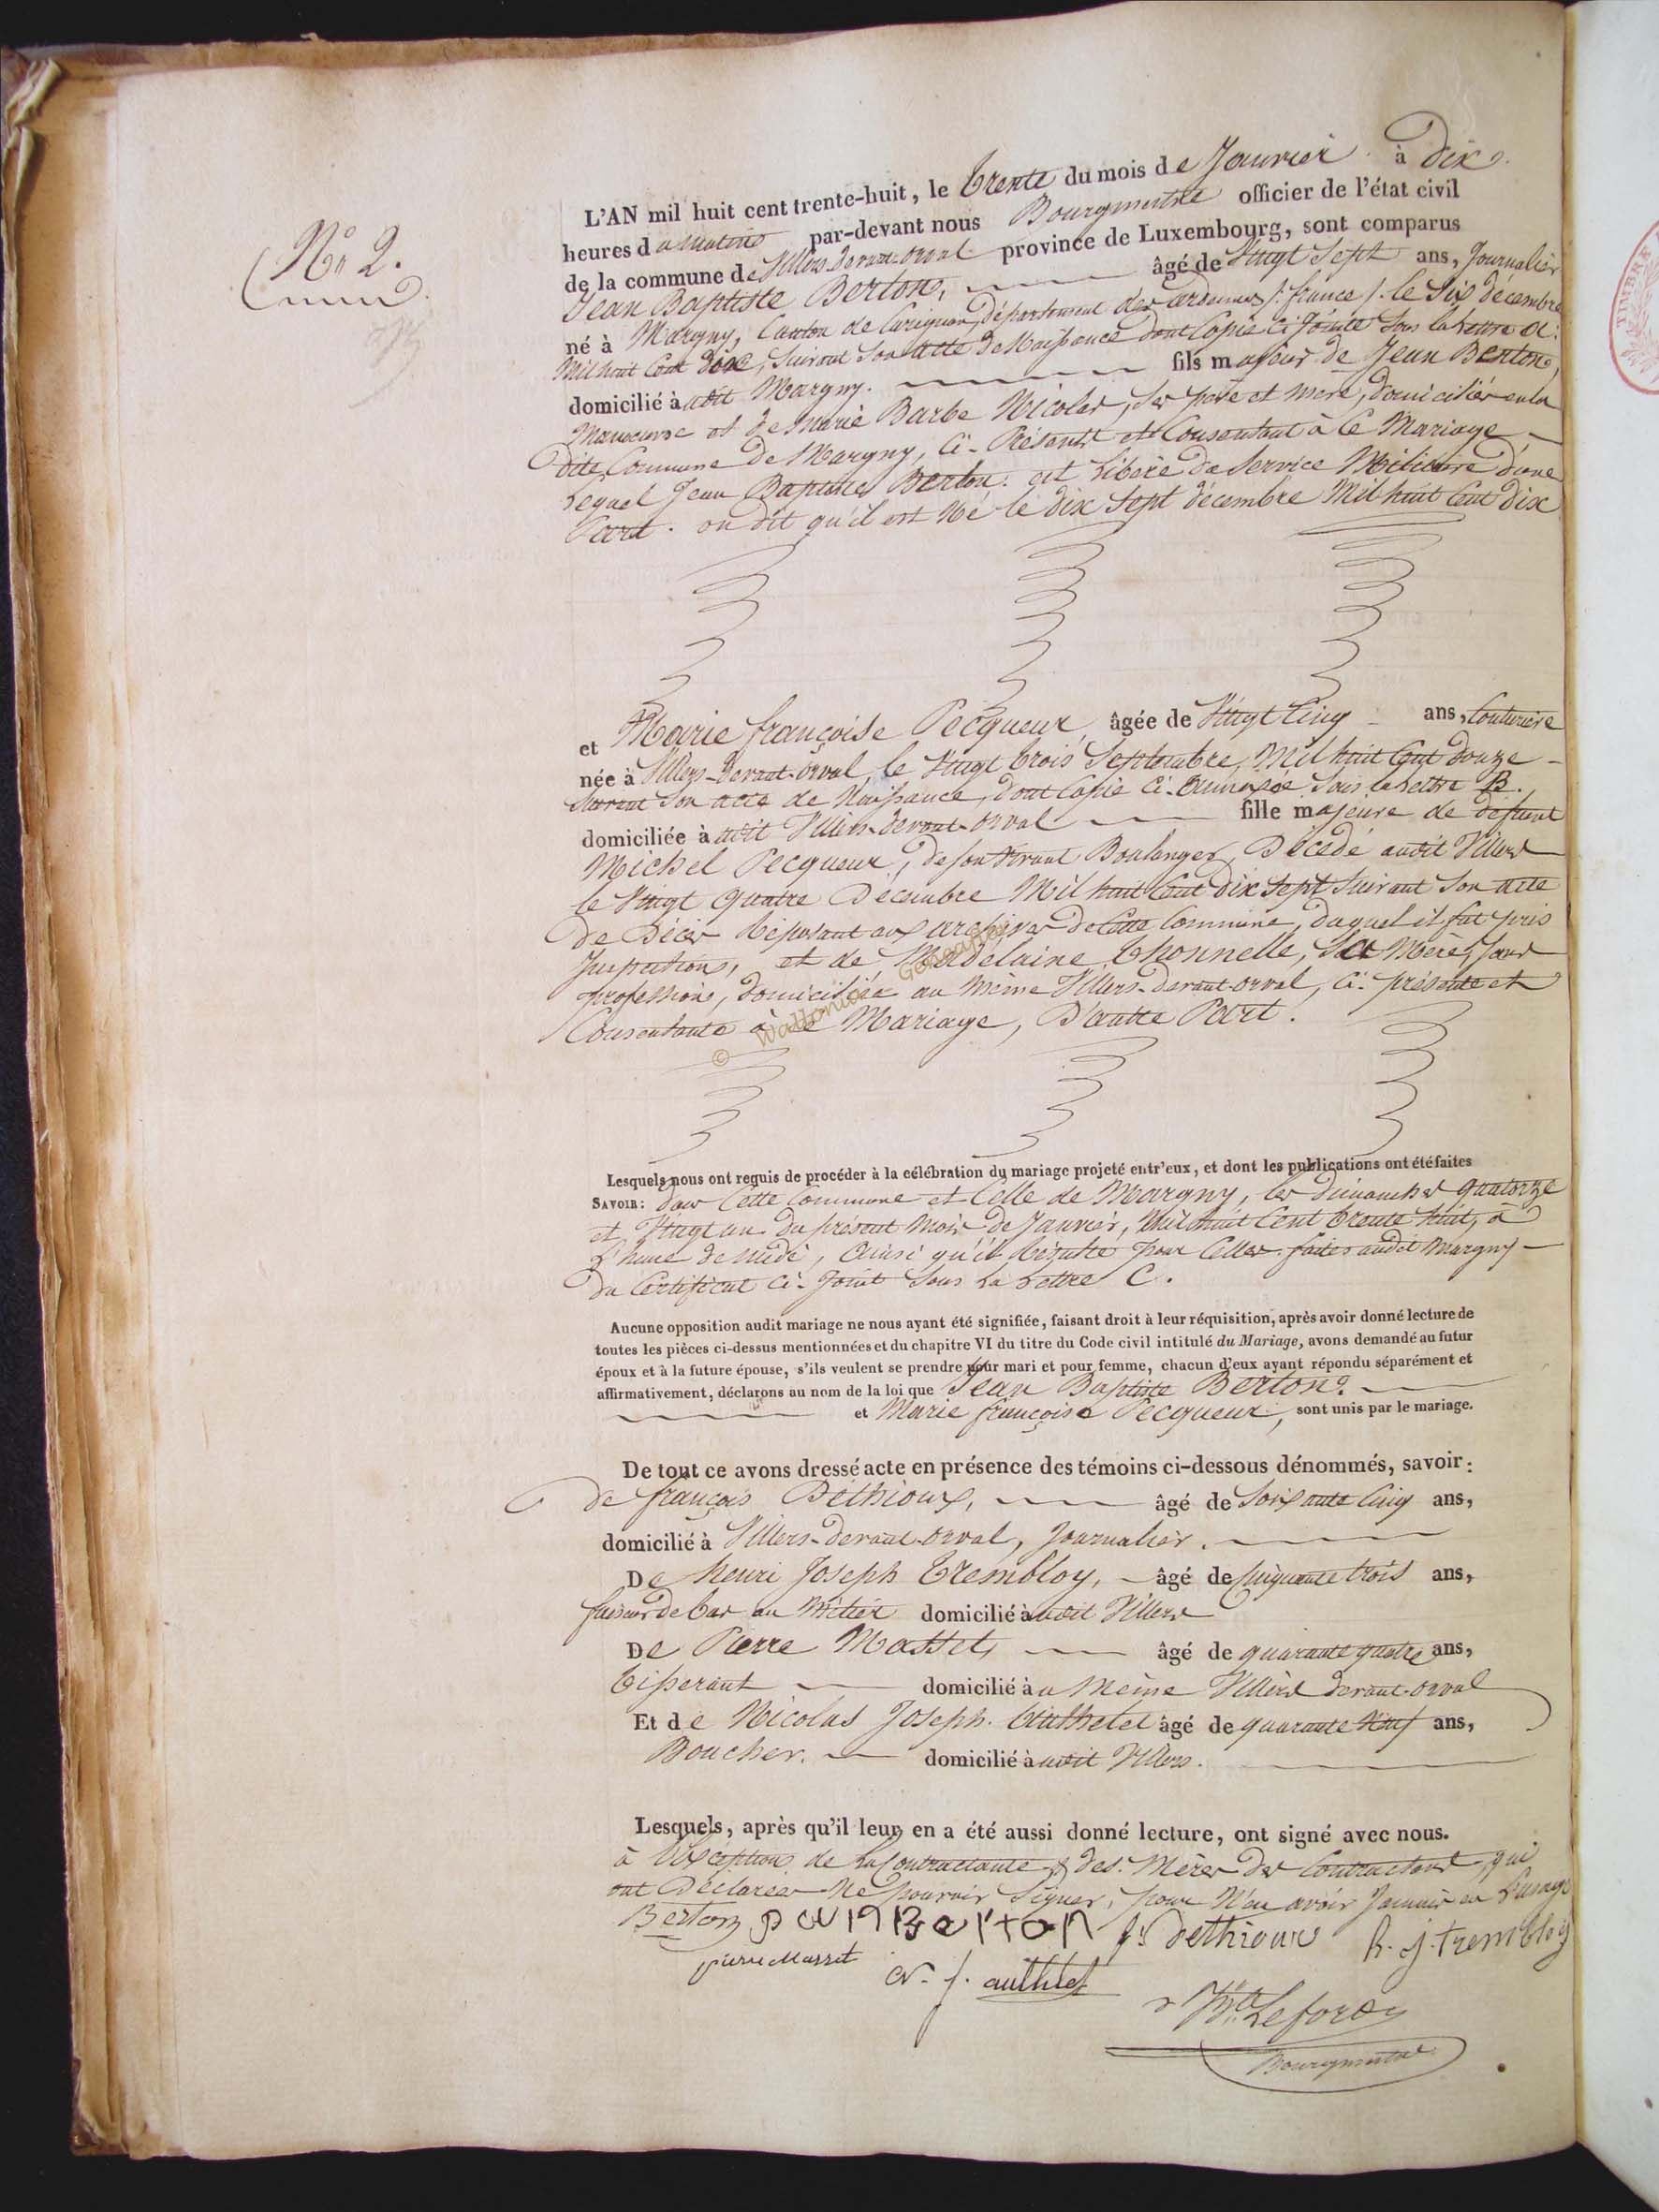 N° 2.
L'AN mil huit cent trente-huit, le trente du mois de Janvier à dix
heures du matin par-devant nous Bourgmestre officier de l'état civil
de la commune de Villers devant-orval province de Luxembourg, sont comparus
Jean Baptiste Berton, âgé de Vingt Sept ans, Journalier
né à Margny, Canton de Carignan, département des ardennes /: france /. le Six décembre
Mil huit Cent dix, Suivant Son acte de Naissance dont Copie Ci Jointe Sous la lettre A:
domicilié à udit Margny. fils majeur de Jean Berton,
Manœuvre et de Marie Barbe Nicolas, Ses père et mère, domiciliés en la
dite Commune de Margny, Ci-Présents et Consentant à Ce Mariage
Lequel Jean Baptiste Berton. est Libéré du Service Militaire d'une
Part. on dit qu'il est Né le dix Sept décembre Mil huit Cent dix
et Marie françoise Pecqueur, âgée de Vingt Cinq ans, Couturière
née à Villers-devant-orval, le Vingt trois Septembre, Mil huit Cent douze
Suivant Son acte de Naissance, dont Copie Ci-Annexée Sous la lettre B.
domiciliée à udit Villers-devant-orval fille majeure de defunt
Michel Pecqueur, de son Vivant Boulanger, Décédé audit Villers
le Vingt quatre Décembre Mil huit Cent dix Sept Suivant Son acte
de Décès Réposant aux archives de Cette Commune, duquel il fut pris
Inspection, et de Madelaine Thonnelle, Sa Mère, Sans
profession, domiciliée au même Villers-devant-orval, Ci-présente et
Consentante à Ce Mariage, D'autre Part.
© Wallonia Genealogie
Lesquels nous ont requis de procéder à la célébration du mariage projeté entr'eux, et dont les publications ont été faites
SAVOIR: dans Cette Commune et Celle de Margny, les dimanches quatorze
et Vingt un du présent Mois de Janvier, Mil huit Cent trente huit, à
L'heure de midi, Ainsi qu'il Résulte pour Celles faites audit Margny
du Certificat Ci-Joint Sous La Lettre C.
Aucune opposition audit mariage ne nous ayant été signifiée, faisant droit à leur réquisition, après avoir donné lecture de
toutes les pièces ci-dessus mentionnées et du chapitre VI du titre du Code civil intitulé du Mariage, avons demandé au futur
époux et à la future épouse, s'ils veulent se prendre pour mari et pour femme, chacun d'eux ayant répondu séparément et
affirmativement, déclarons au nom de la loi que Jean Baptiste Berton.
et Marie françoise Pecqueur, sont unis par le mariage.
De tout ce avons dressé acte en présence des témoins ci-dessous dénommés, savoir:
de françois Dethioux, âgé de Soixante Cinq ans,
domicilié à Villers-devant-orval, Journalier.
De henri Joseph Trembloy, âgé de Cinquante trois ans,
faiseur de bas au Métier domicilié à udit Villers
De Pierre Masset, âgé de quarante quatre ans,
tisserant domicilié à u Même Villers devant-orval
Et de Nicolas Joseph Authelet âgé de quarante Neuf ans,
Boucher. domicilié à udit Villers.
Lesquels, après qu'il leur en a été aussi donné lecture, ont signé avec nous.
à l'Exception de La Contractante & des Mères des Contractants, qui
ont Déclarées Ne pouvoir Signer, pour N'en avoir Jamais eu L'usage
Berton Berton fs Dethioux h. j. trembloy
pierre Masset N. J. authelet
Lefor
Bourgmestre
TIMBRE